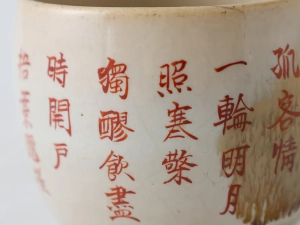 孤客情
一輪明月
照寒檠
獨醪飲盡
時開戶